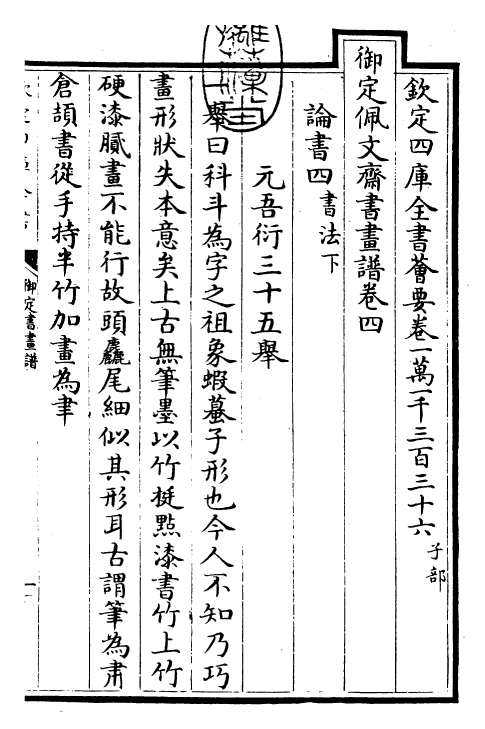 欽定四庫全書薈要卷一萬一千三百三十六 子部
御定佩文齋書畫譜卷四
論書四 書法下
元吾衍三十五舉
一舉曰科斗為字之祖象蝦蟇子形也今人不知乃巧
畫形狀失本意矣上古無筆墨以竹梃點漆書竹上竹
硬漆膩畫不能行故頭麤尾細似其形耳古謂筆為聿
倉頡書從手持半竹加畫為聿
御定書畫譜